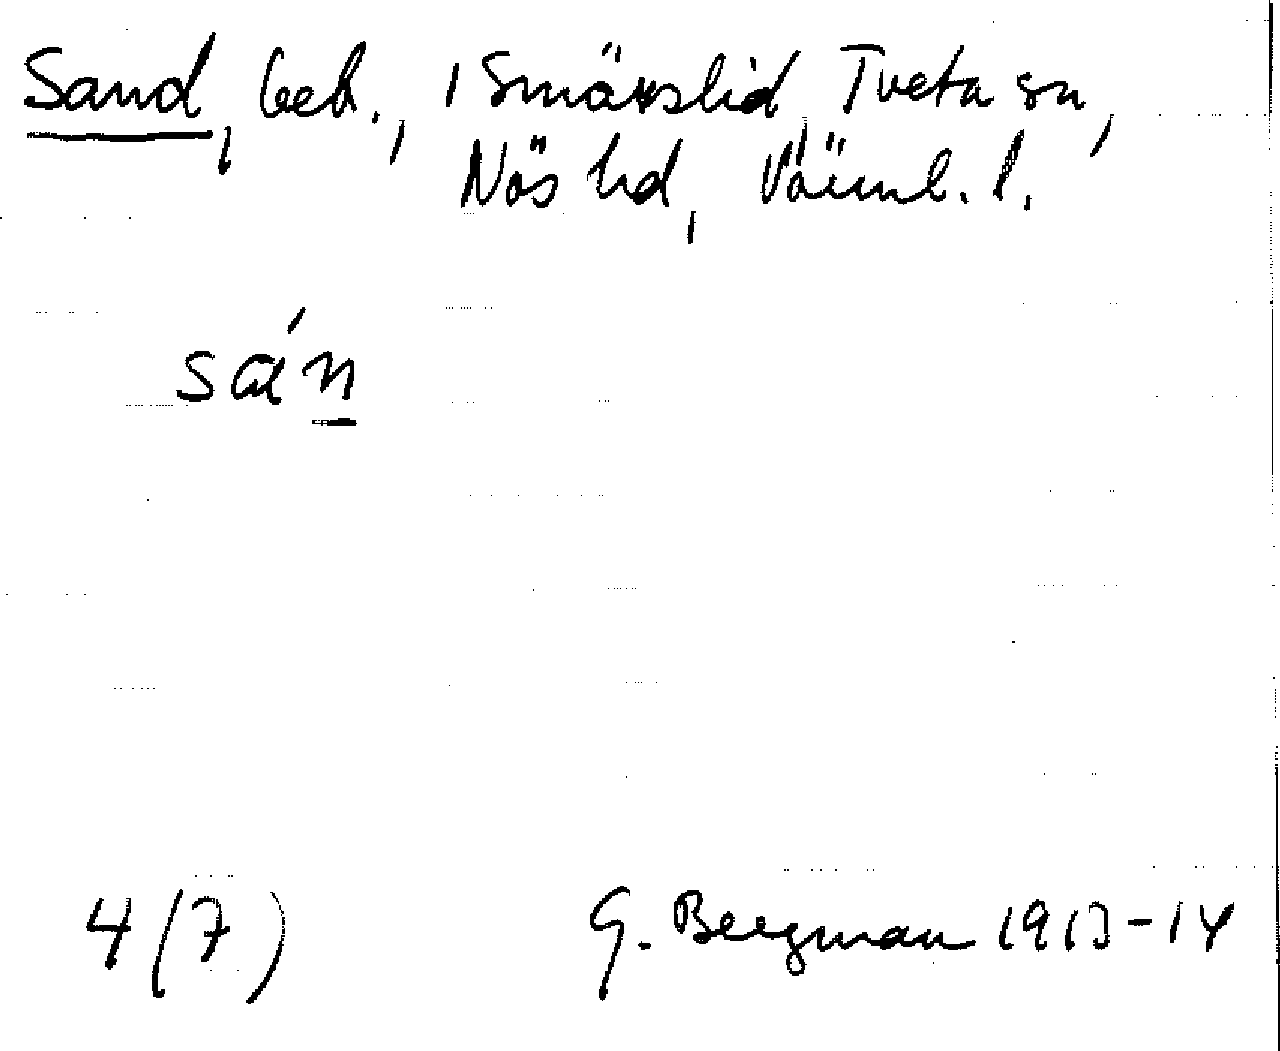 Sand, beb., i Smärslid, Tveta sn,
Näs hd, Värml. l.
sa´n
4 (7) G. Bergman 1913-14